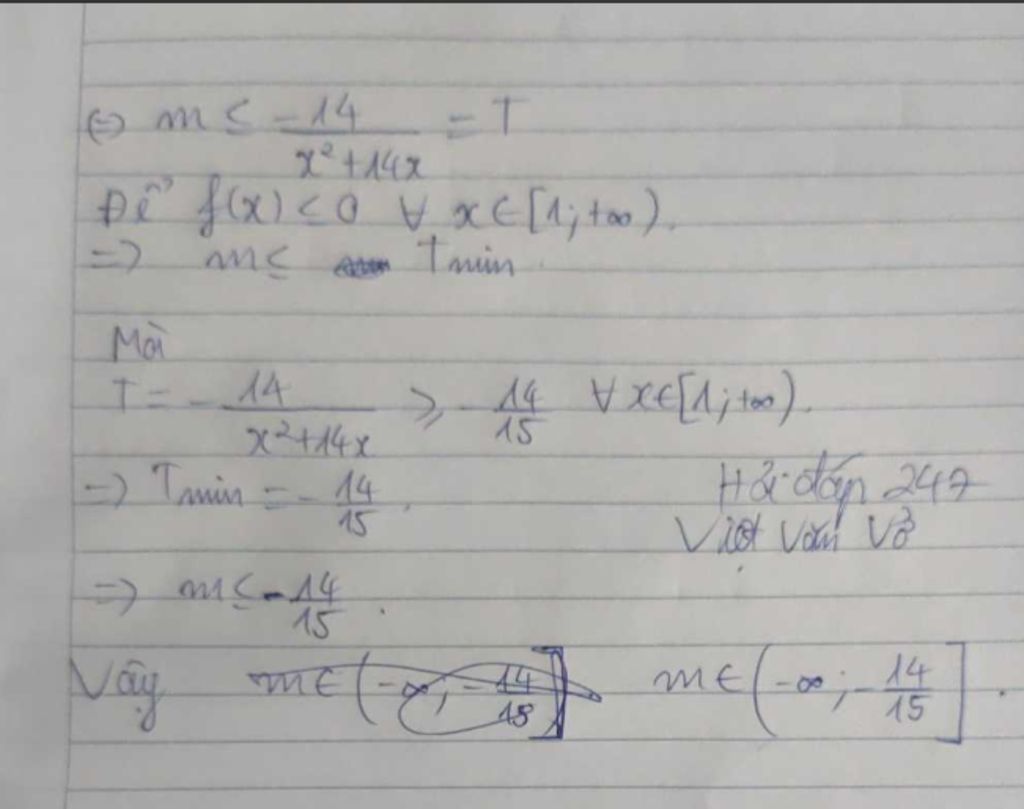 ⇔ m ≤ -14/(x²+14x) = T
Để f(x) ≤ 0 ∀ x ∈ [1; +∞).
=> m ≤ Tmin.
Mà
T = -14/(x²+14x) ≥ -14/15 ∀ x ∈ [1; +∞).
=> Tmin = -14/15.
Hỏi đáp 247
Việt Văn Vở
=> m ≤ -14/15.
Vậy m ∈ (-∞; -14/15] m ∈ (-∞; -14/15].